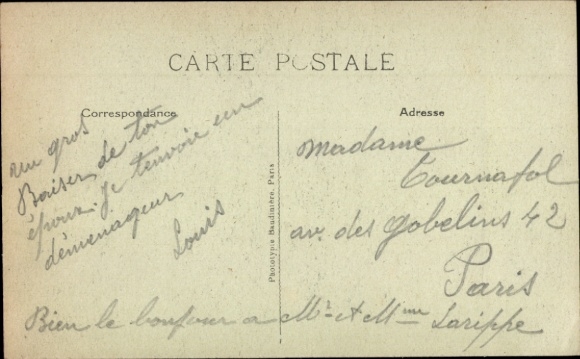 CARTE POSTALE
Correspondance
Adresse
un gros
Baiser de ton
époux. je t'envoie un
démenageur
Louis
Phototypie Baudinière, Paris
Madame
Tournafol
av. des Gobelins 42
Paris
Bien le bonjour a Mr et Mme Larippe